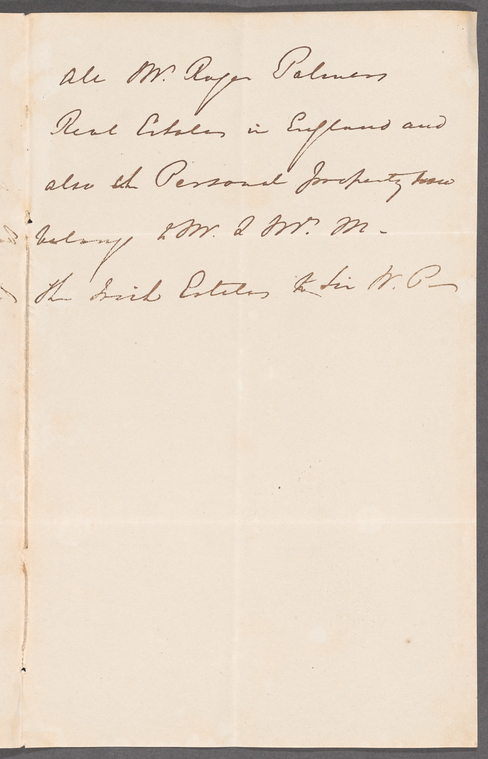 All Mr. Roger Palmers
Real Estates in England and
also the Personal property now
belong to Mr. & Mrs. M -
the Irish Estates to Sir W. P-